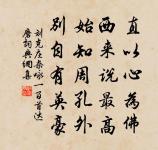 直以心為佛
西來說最高
始知周孔外
別自有英豪
劉克莊雜詠一百首達
磨詞典網集